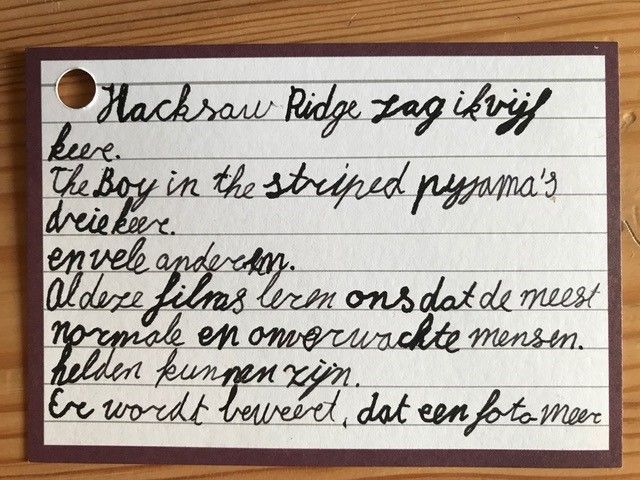 Hacksaw Ridge zag ik vijf
keer.
The Boy in the striped pyjama's
drie keer.
en vele anderen.
Al deze films leren ons dat de meest
normale en onverwachte mensen.
helden kunnen zijn.
Er wordt beweert, dat een foto meer